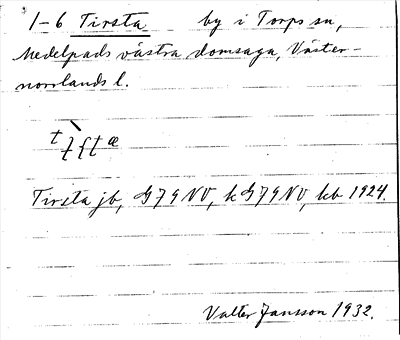 1-6 Tirsta by i Torps sn,
Medelpads västra domsaga, Väster-
norrlands l.
Tirsta jb, G79NV, kG79NV, kb 1924.
Valter Jansson 1932.